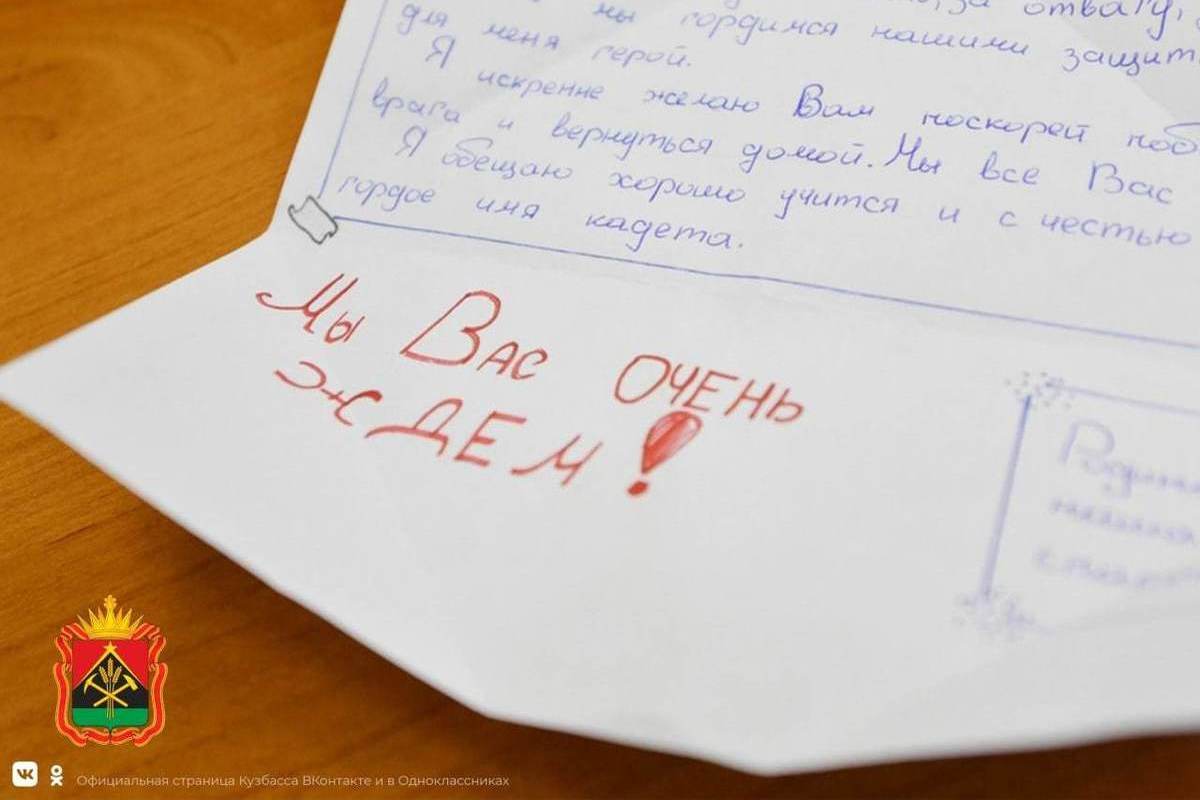 за отвагу,
мы гордимся нашими
для меня герой.
Я искренне желаю Вам поскорей
врага и вернуться домой. Мы все Вас
Я обещаю хорошо учится и с честью
гордое имя кадета.
Мы Вас очень
ждем!
Официальная страница Кузбасса ВКонтакте и в Одноклассниках